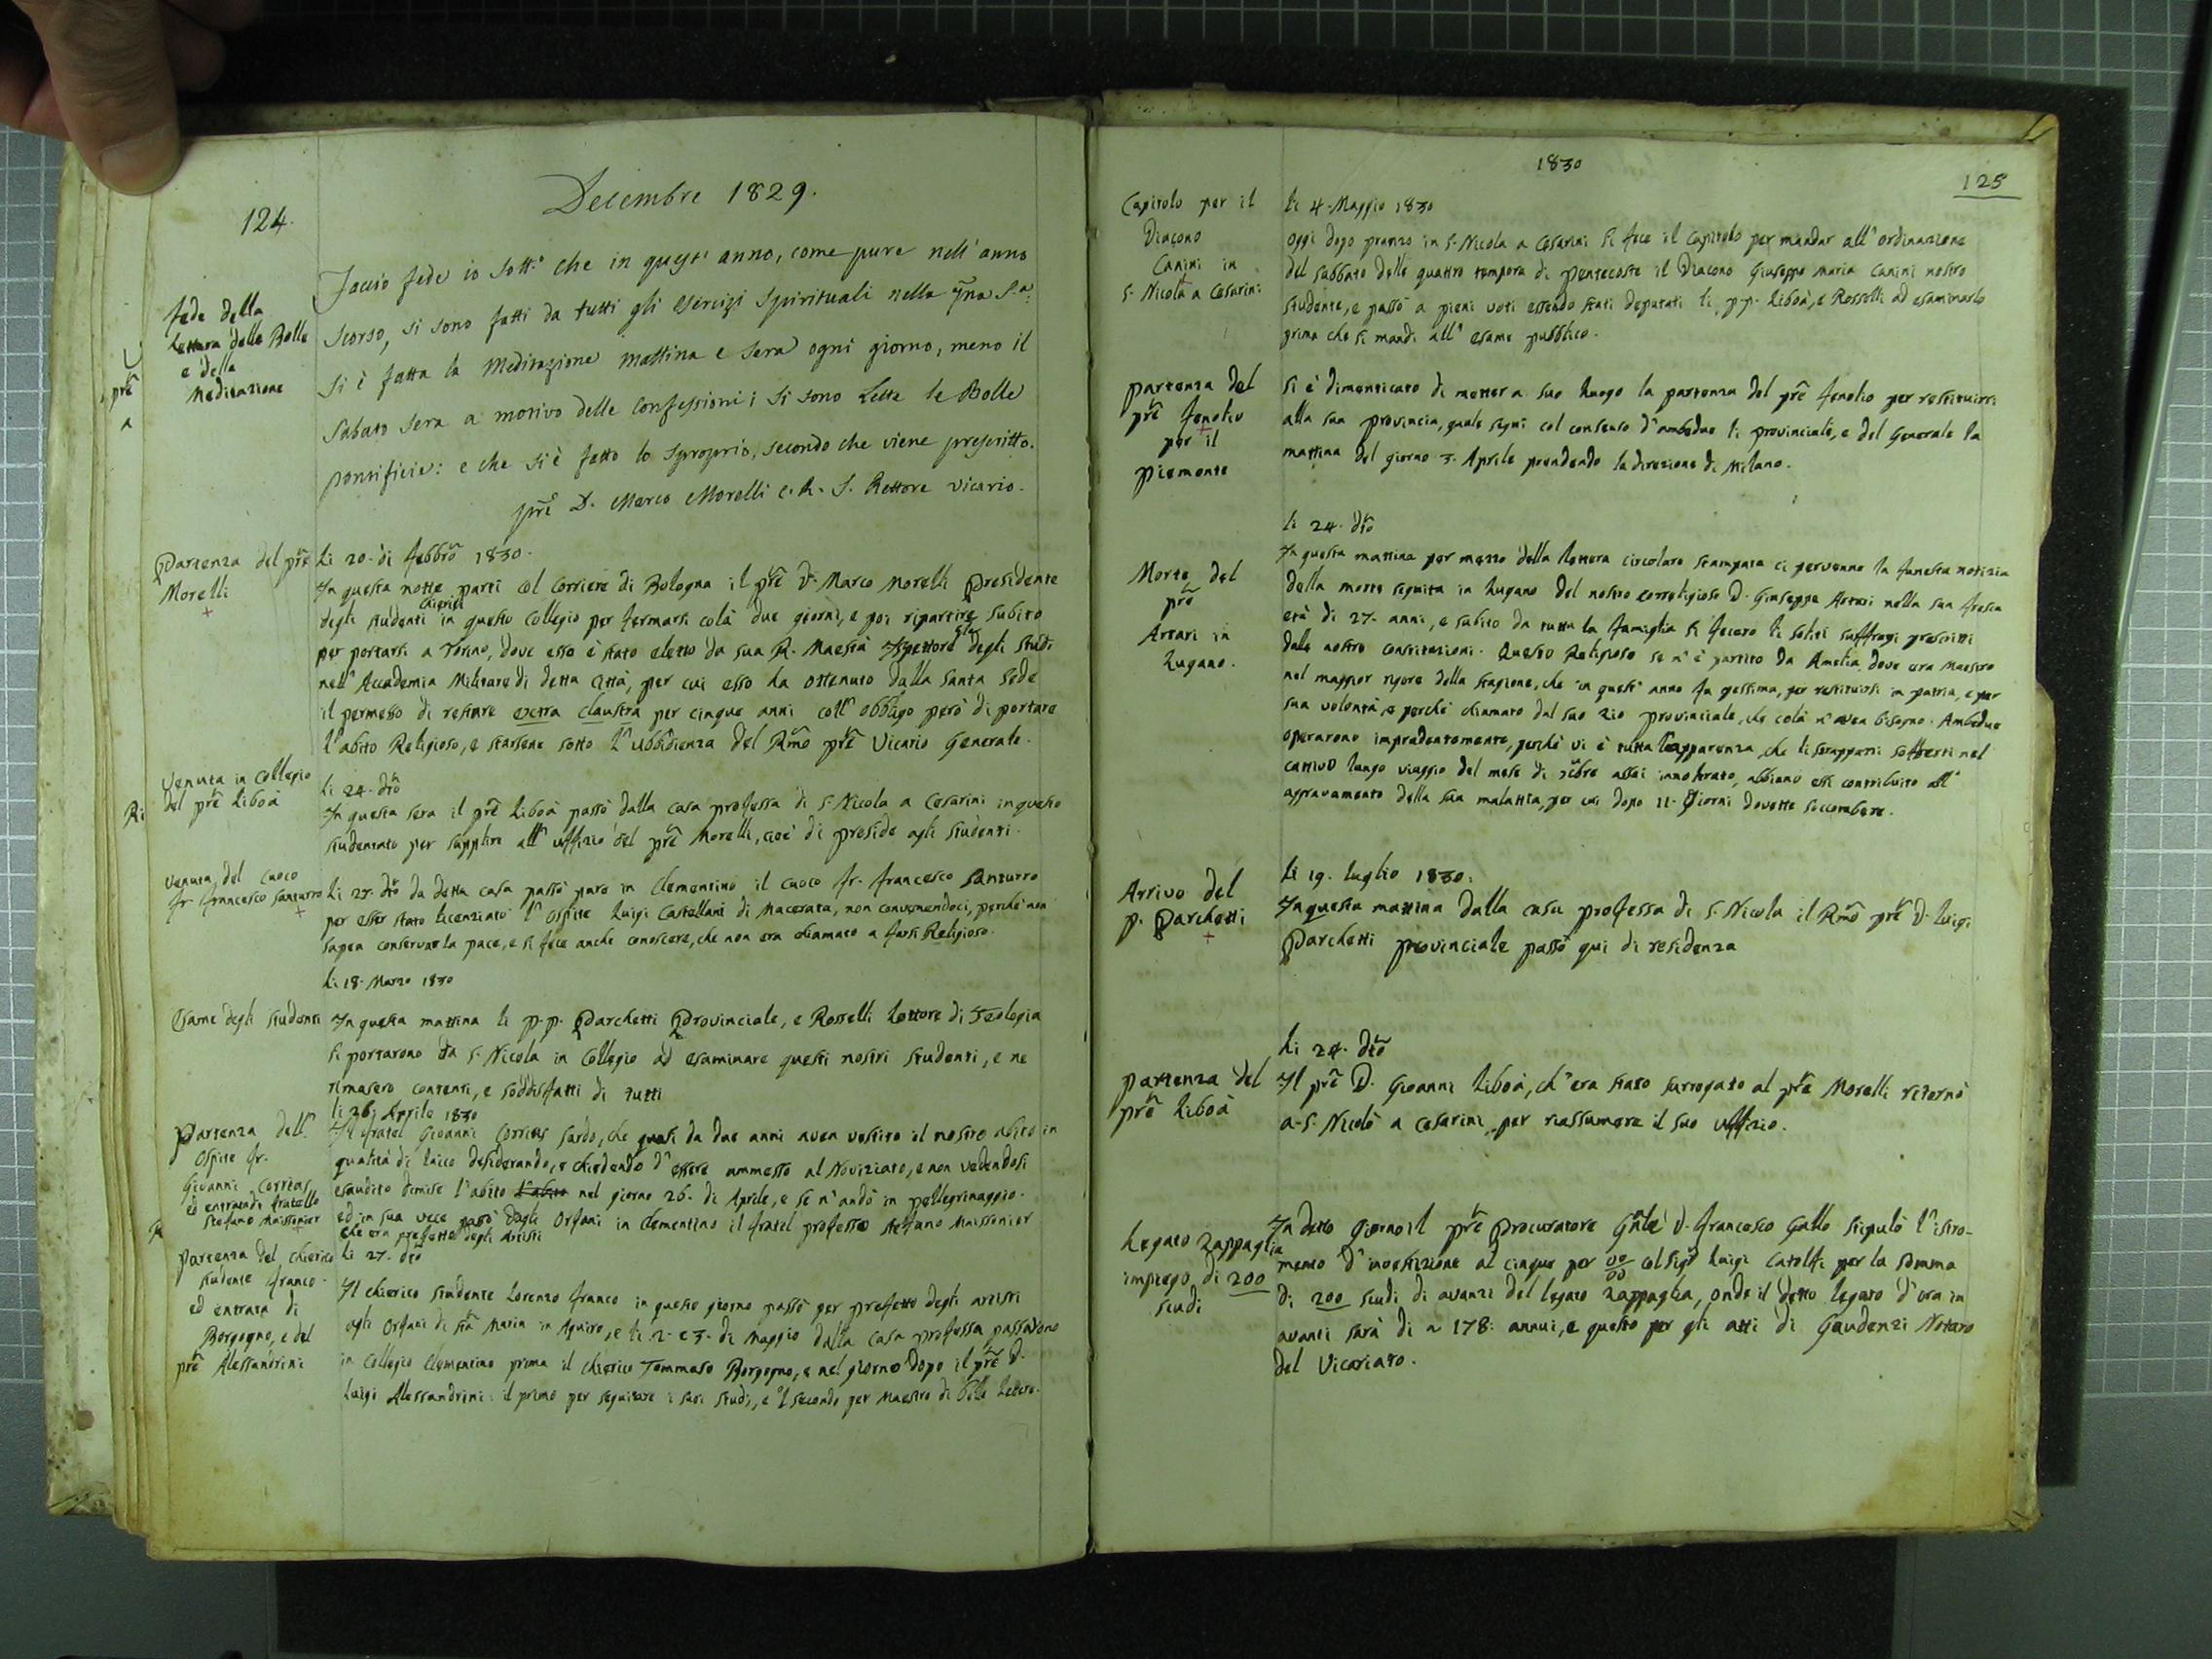 124.
Decembre 1829.
fede della
Lettura delle Bolle
e della
Meditazione
Faccio fede io Sott.o che in quest' anno, come pure nell' anno
scorso, si sono fatti da tutti gli esercizi spirituali nella
Si è fatta la Meditazione mattina e sera ogni giorno, meno il
Sabato sera a motivo delle confessioni; si sono Lette le Bolle
pontificie: e che si è fatto lo sproprio, secondo che viene prescritto.
D. Marco Morelli C. R. S. Rettore Vicario.
Partenza del prẽ
Morelli
Li 20. di febbro 1830.
In questa notte parti col corriere di Bologna il prẽ D. Marco Morelli Presidente
degli studenti chierici in questo Collegio per fermarsi colà due giorni, e poi ripartire subito
per portarsi a Torino, dove esso è stato eletto da sua R. Maestà Ispettore degli studi
nell' Accademia Militare di detta città, per cui esso ha ottenuto dalla Santa Sede
il permesso di restare extra claustra per cinque anni coll' obbligo però di portare
l' abito Religioso, e starsene sotto l' ubbidienza del Rmo prẽ Vicario Generale.
Venuta in Collegio
del prẽ Liboà
li 24. dto
In questa sera il prẽ Liboà passò dalla casa professa di S. Nicola a Cesarini in questo
studentato per supplire all' uffizio del prẽ Morelli, cioè di preside agli studenti.
Venuta del Cuoco
fr. francesco Santurro
li 27. dto da detta casa passò pure in Clementino il cuoco fr. francesco Santurro
per esser stato licenziato l' ospite Luigi Castellani di Macerata, non convenendoci, perchè non
sapea conservar la pace, e si fece anche conoscere, che non era chiamato a farsi Religioso.
li 18. Marzo 1830
Esame degli studenti
In questa mattina li p.p. Parchetti Provinciale, e Rosselli Lettore di Teologia
si portarono da S. Nicola in Collegio ad esaminare questi nostri studenti, e ne
rimasero contenti, e soddisfatti di tutti
li 26. Aprile 1830
Partenza dell'
Ospite fr.
Giovanni Corrias
ed entrata di fratello
Stefano Maissonier
Il fratel Giovanni Corrias Sardo, che quasi da due anni avea vestito il nostro abito in
qualità di laico desiderando, e chiedendo d' essere ammesso al Noviziato, e non vedendosi
esaudito dimise l' abito l' abito nel giorno 26. di Aprile, e se n' andò in pellegrinaggio.
ed in sua vece passò dagli Orfani in Clementino il fratel professo Stefano Maissonier
che era prefetto degli Artisti
Partenza del chierico
studente franco.
ed entrata di
Borgogno, e del
prẽ Alessandrini
li 27. dto
Il chierico studente Lorenzo franco in questo giorno passò per prefetto degli artisti
agli Orfani di Sta Maria in Aquiro, e li 2. e 3. di Maggio dalla Casa professa passarono
in Collegio Clementino prima il chierico Tommaso Borgogno, e nel giorno dopo il prẽ D.
Luigi Alessandrini: il primo per seguitare i suoi studj, e 'l secondo per Maestro di belle Lettere.
1830
125
Capitolo per il
Diacono
Canini in
S. Nicola a Cesarini
li 4. Maggio 1830
Oggi dopo pranzo in S. Nicola a Cesarini si fece il Capitolo per mandar all' ordinazione
del sabbato delle quattro tempora di Pentecoste il Diacono Giuseppe Maria Canini nostro
studente, e passò a pieni voti essendo stati deputati li p.p. Liboà, e Rosselli ad esaminarlo
prima che si mandi all' esame pubblico.
partenza del
prẽ fenolio
per il
piemonte
Si è dimenticato di metter a suo luogo la partenza del prẽ fenolio per restituirsi
alla sua provincia, quale seguì col consenso d' ambedue li provinciali, e del Generale la
mattina del giorno 3. Aprile prendendo la direzione di Milano.
Morte del
prẽ
Artari in
Lugano.
li 24. dto
In questa mattina per mezzo della lettera circolare stampata ci pervenne la funesta notizia
della morte seguita in Lugano del nostro correligioso D. Giuseppe Artari nella sua fresca
età di 27. anni, e subito da tutta la famiglia si fecero li soliti suffragi prescritti
dalle nostre constituzioni. Questo Religioso se n' è partito da Amelia dove era Maestro
nel maggior rigore della stagione, che in quest' anno fu pessima, per restituirsi in patria, e per
sua volontà, e perchè chiamato dal suo zio provinciale, che colà n' avea bisogno. Ambedue
operarono imprudentemente, perchè vi è tutta l' apparenza, che li strappazzi sofferti nel
cattivo lungo viaggio del mese di xbre assai innoltrato, abbiano essi contribuito all'
aggravamento della sua malattia, per cui dopo 11. giorni dovette soccombere.
Arrivo del
p. Parchetti
li 19. luglio 1830.
In questa mattina dalla casa professa di S. Nicola il Rmo prẽ D. Luigi
Parchetti provinciale passò qui di residenza
partenza del
prẽ Liboà
li 24. dto
Il prẽ D. Gioanni Liboà, ch' era stato surrogato al prẽ Morelli ritornò
a S. Nicolò a Cesarini, per riassumere il suo uffizio.
Legato Zappaglia
impiego di 200
scudi
In detto giorno il prẽ Procuratore Gnle D. francesco Gallo stipulò l' istro-
mento d' investizione al cinque per 00/00 col Sigr Luigi Catolfi per la somma
di 200 scudi di avanzi del legato Zappaglia, onde il detto legato d' ora in
avanti sarà di 178: annui, e questo per gli atti di Gaudenzi Notaro
del Vicariato.